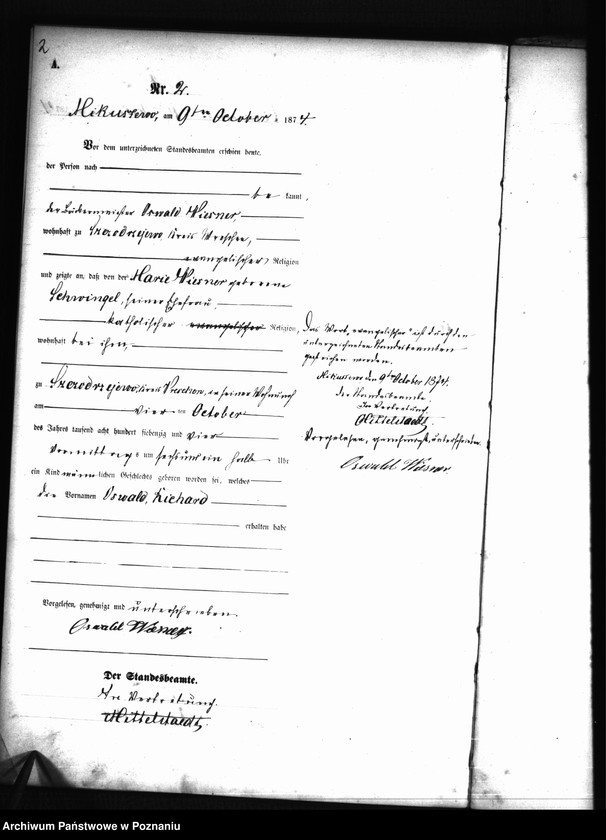 2
A.
Nr. 2.
Mikuszewo, am 9ten October 1874.
Vor dem unterzeichneten Standesbeamten erschien heute,
der Person nach
be kannt,
der Oswald Wiesner,
wohnhaft zu Szczodrzejewo, Kreis Wreschen,
evangelischer Religion
und zeigte an, daß von der Marie Wiesner geborene
Schwingel, seiner Ehefrau,
katholischer evangelischer Religion,
wohnhaft bei ihm,
zu Szczodrzejewo, Kreis Wreschen, in seiner Wohnung
am vier ten October
des Jahres tausend acht hundert siebenzig und vier
Vormittags um sechs und ein halb Uhr
ein Kind männlichen Geschlechts geboren worden sei, welches
die Vornamen Oswald, Richard
erhalten habe
Vorgelesen, genehmigt und unterschrieben
Oswald Wiesner.
Der Standesbeamte.
In Vertretung.
Mittelstaedt
Das Wort „evangelischer" ist durch den
unterzeichneten Standesbeamten
gestrichen worden.
Mikuszewo den 9ten October 1874.
der Standesbeamte.
In Vertretung.
Mittelstaedt
Vorgelesen, genehmigt, unterschrieben
Oswald Wiesner
Archiwum Państwowe w Poznaniu